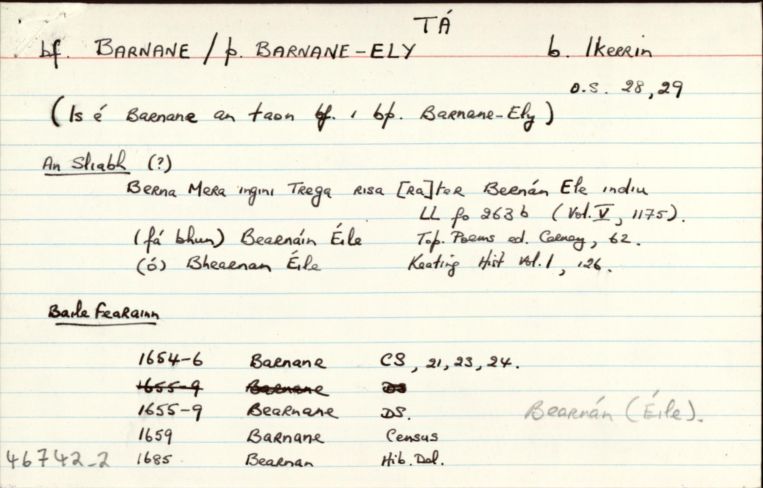 TÁ
bf. BARNANE / p. BARNANE-ELY b. Ikerrin
O.S. 28, 29
(Is é Barnane an t-aon bf. i bp. Barnane-Ely)
An Sliabh (?)
Berna Mera ingini Trega risa [ra]ter Bernán Ele indiu
LL fo 263 b (Vol. V, 1175).
(fá bhun) Bearnáin Éile Top. Poems ed. Carney, 62.
(ó) Bhearnan Éile Keating Hist Vol. 1, 126.
Baile Fearainn
1654-6 Barnane CS, 21, 23, 24.
1655-9 Barnane DS
1655-9 Bearnane DS. Bearnán (Éile).
1659 Barnane Census
46742-2 1685 Bearnan Hib. Del.